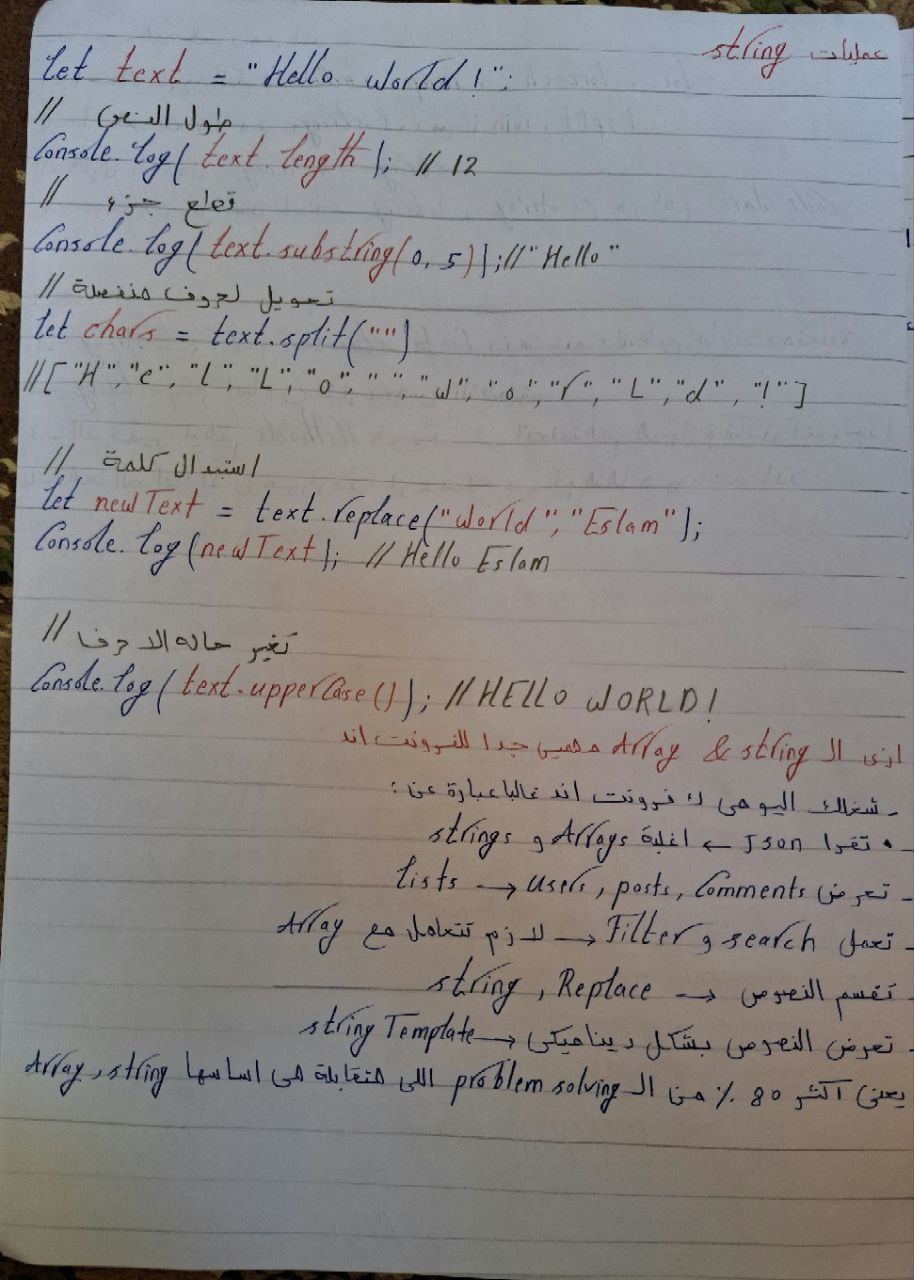 عمليات string
let text = "Hello world!";
// طول النص
Console.log(text.length); // 12
// قطع جزء
Console.log(text.substring(0, 5));//"Hello"
// تحويل لحروف منفصلة
let chars = text.split("")
//["H","e","l","L","o"," ","w","o","r","L","d","!"]
// استبدال كلمة
let newText = text.replace("world","Eslam");
Console.log(newText); // Hello Eslam
// تغير حاله الاحرف
Console.log(text.upperCase()); //HELLO WORLD!
ازى الـ Array & string مهمين جدا للفرونت اند
- شغلك اليومى ك فرونت اند غالبا عبارة عن:
• تقرا Json ← اغلبة Arrays و strings
- تعرض Lists → users, posts, Comments
- تعمل Filter و search → لازم تتعامل مع Array
- تقسم النصوص → string, Replace
- تعرض النصوص بشكل ديناميكى → string Template
يعنى اكثر 80 % من الـ problem solving اللى هتقابلة هى اساسها Array, string